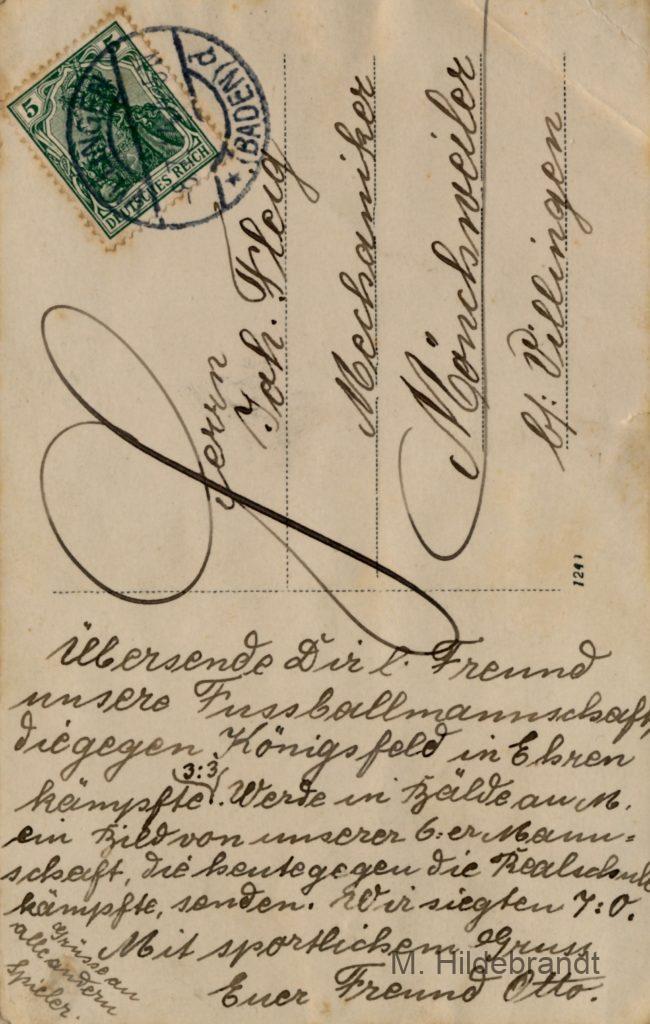 5
DEUTSCHES REICH
(BADEN) d
Herrn
Joh. Fleig
Mechaniker
Mönchweiler
b/: Villingen
1241
Übersende Dir l. Freund
unsere Fussballmannschaft,
die gegen Königsfeld in Ehren
3:3
kämpfte. Werde in Bälde an M.
ein Bild von unserer 6:er Mann=
schaft, die heute gegen die Realschule
kämpfte, senden. Wir siegten 7:0.
Mit sportlichem Gruss
Euer Freund Otto.
Grüsse an
alle andern
Spieler.
M. Hildebrandt